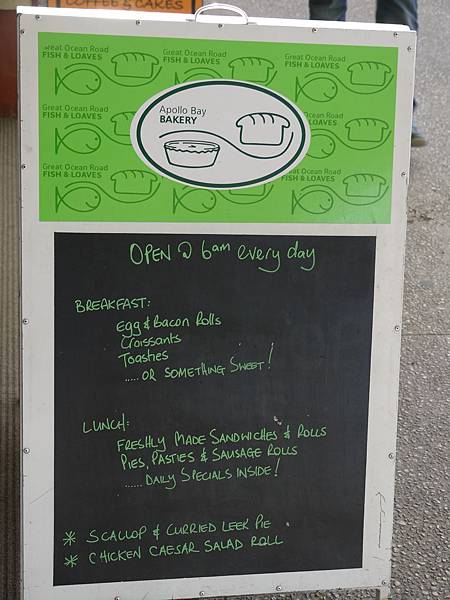 COFFEE & CAKES
Great Ocean Road
FISH & LOAVES
Great Ocean Road
Great Ocean Road
FISH & LOAVES
Great Ocean Road
FISH & LOAVES
Apollo Bay
BAKERY
FISH & LOAVES
Great Ocean Road
FISH & LOAVES
Great Ocean Road
FISH & LOAVES
OPEN @ 6am every day
BREAKFAST:
Egg & Bacon Rolls
Croissants
Toasties
..... OR SOMETHING SWEET!
LUNCH:
FRESHLY MADE SANDWICHES & ROLLS
PIES, PASTIES & SAUSAGE ROLLS
...... DAILY SPECIALS INSIDE!
* SCALLOP & CURRIED LEEK PIE
* CHICKEN CAESAR SALAD ROLL